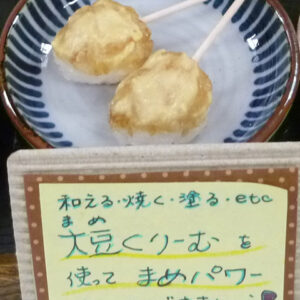 和える・焼く・塗る・etc
まめ
大豆くりーむを
使って まめパワー